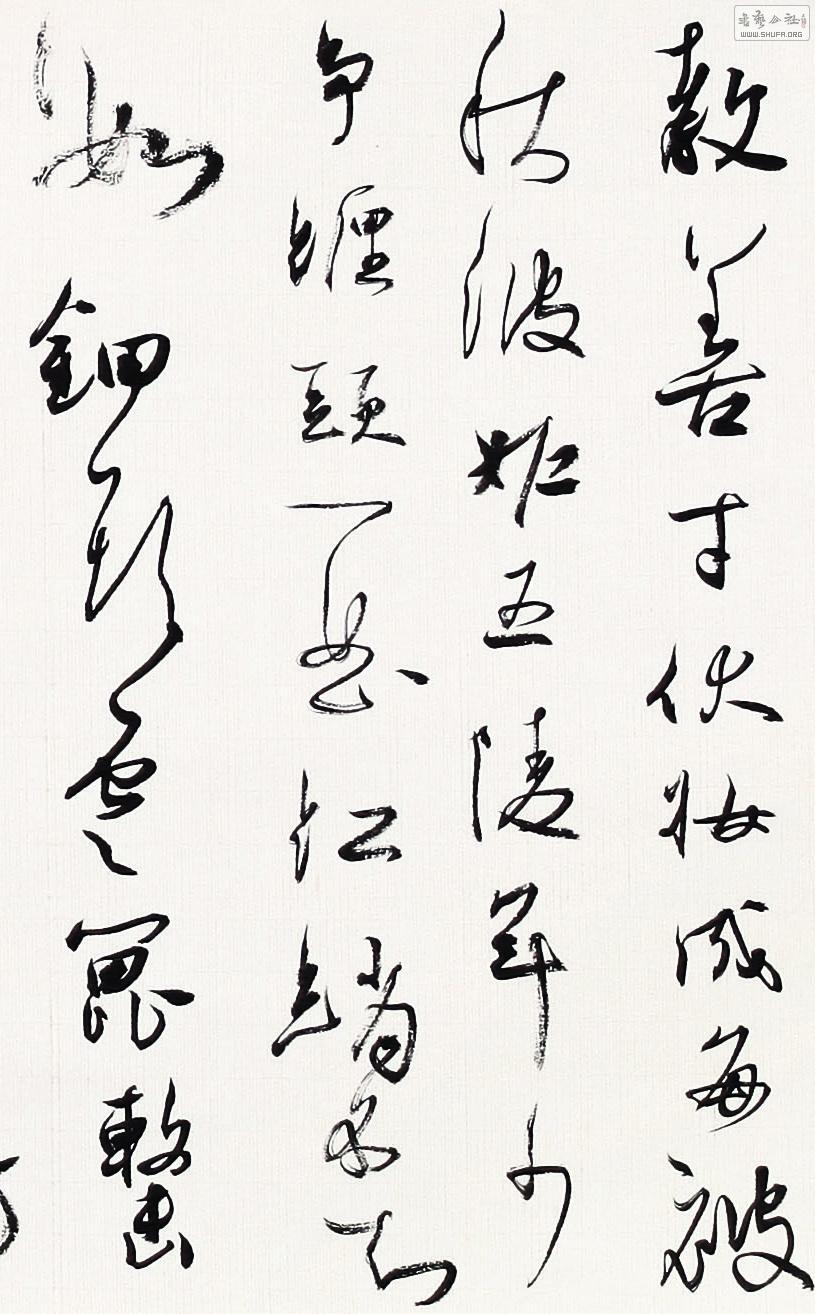 書藝公社
WWW.SHUFA.ORG
教善才伏妝成每被
秋波妒五陵年少
争纏頭一曲紅綃不知
數鈿頭雲篦擊